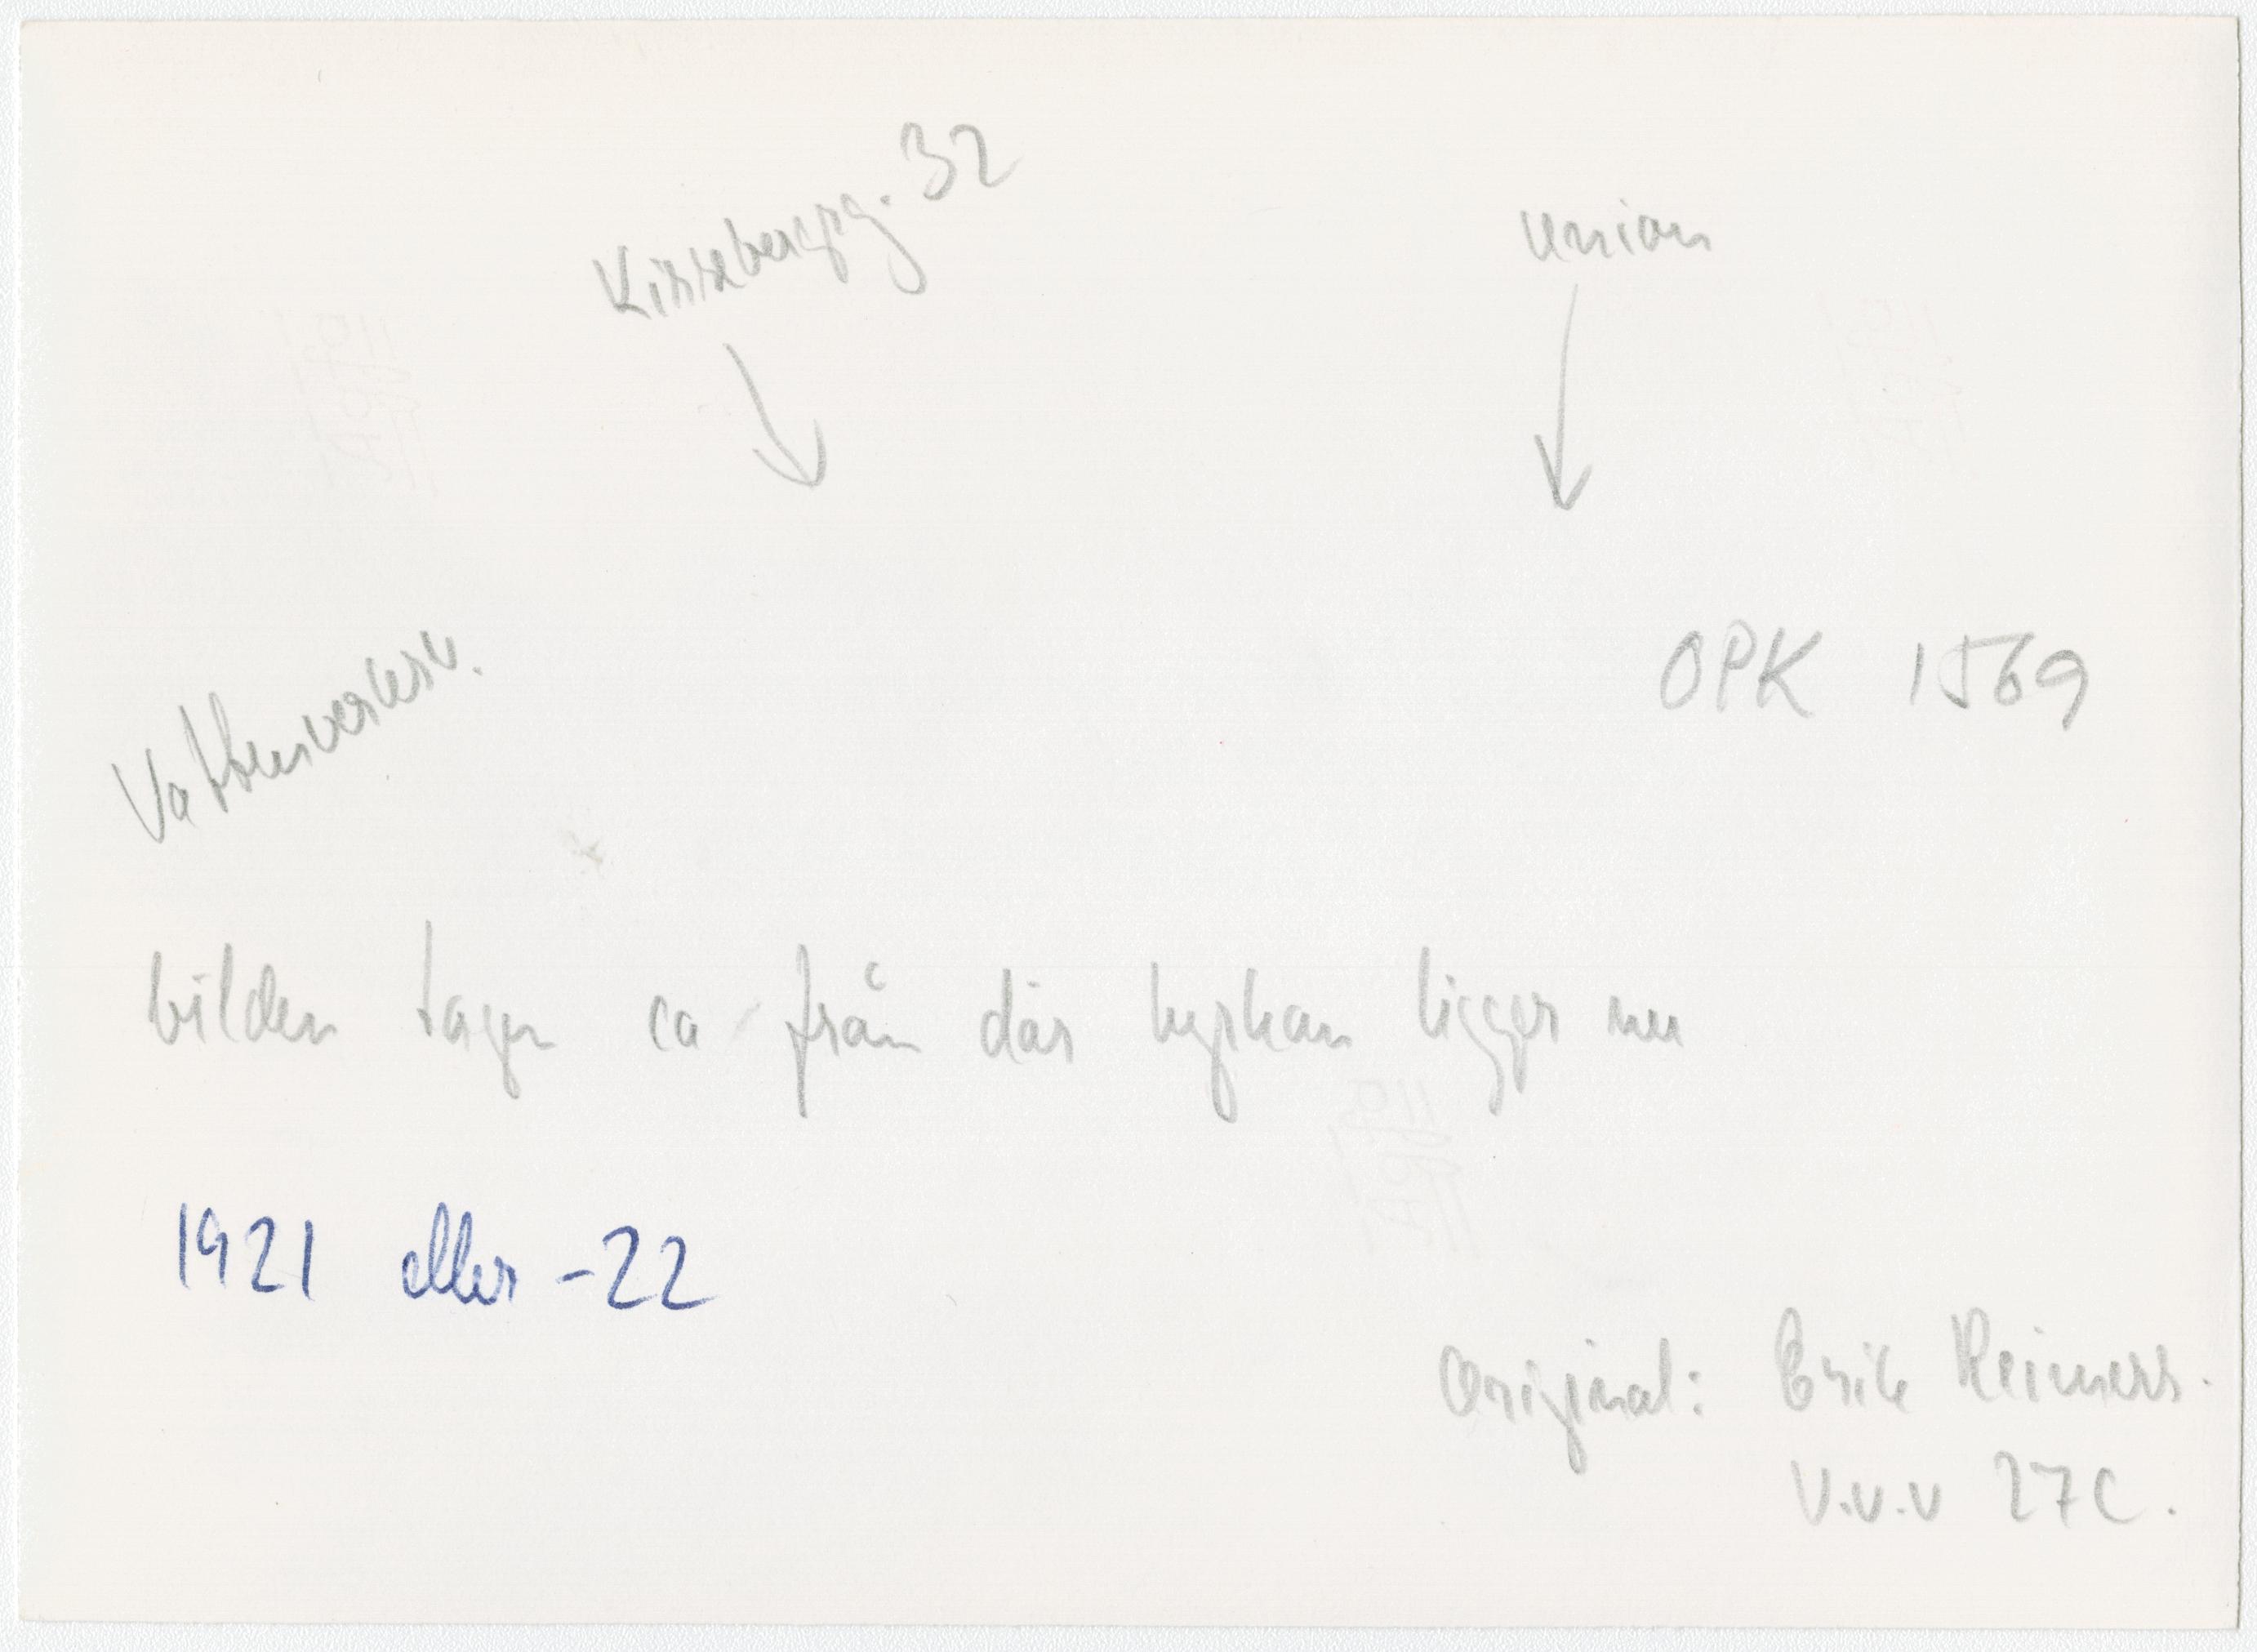 Kissebergsg. 32
Union
Vattenverksv.
OPK 1569
bilden tagen ca från där kyrkan ligger nu
1921 eller -22
Original: Erik Reimers.
V.v.v 27C.